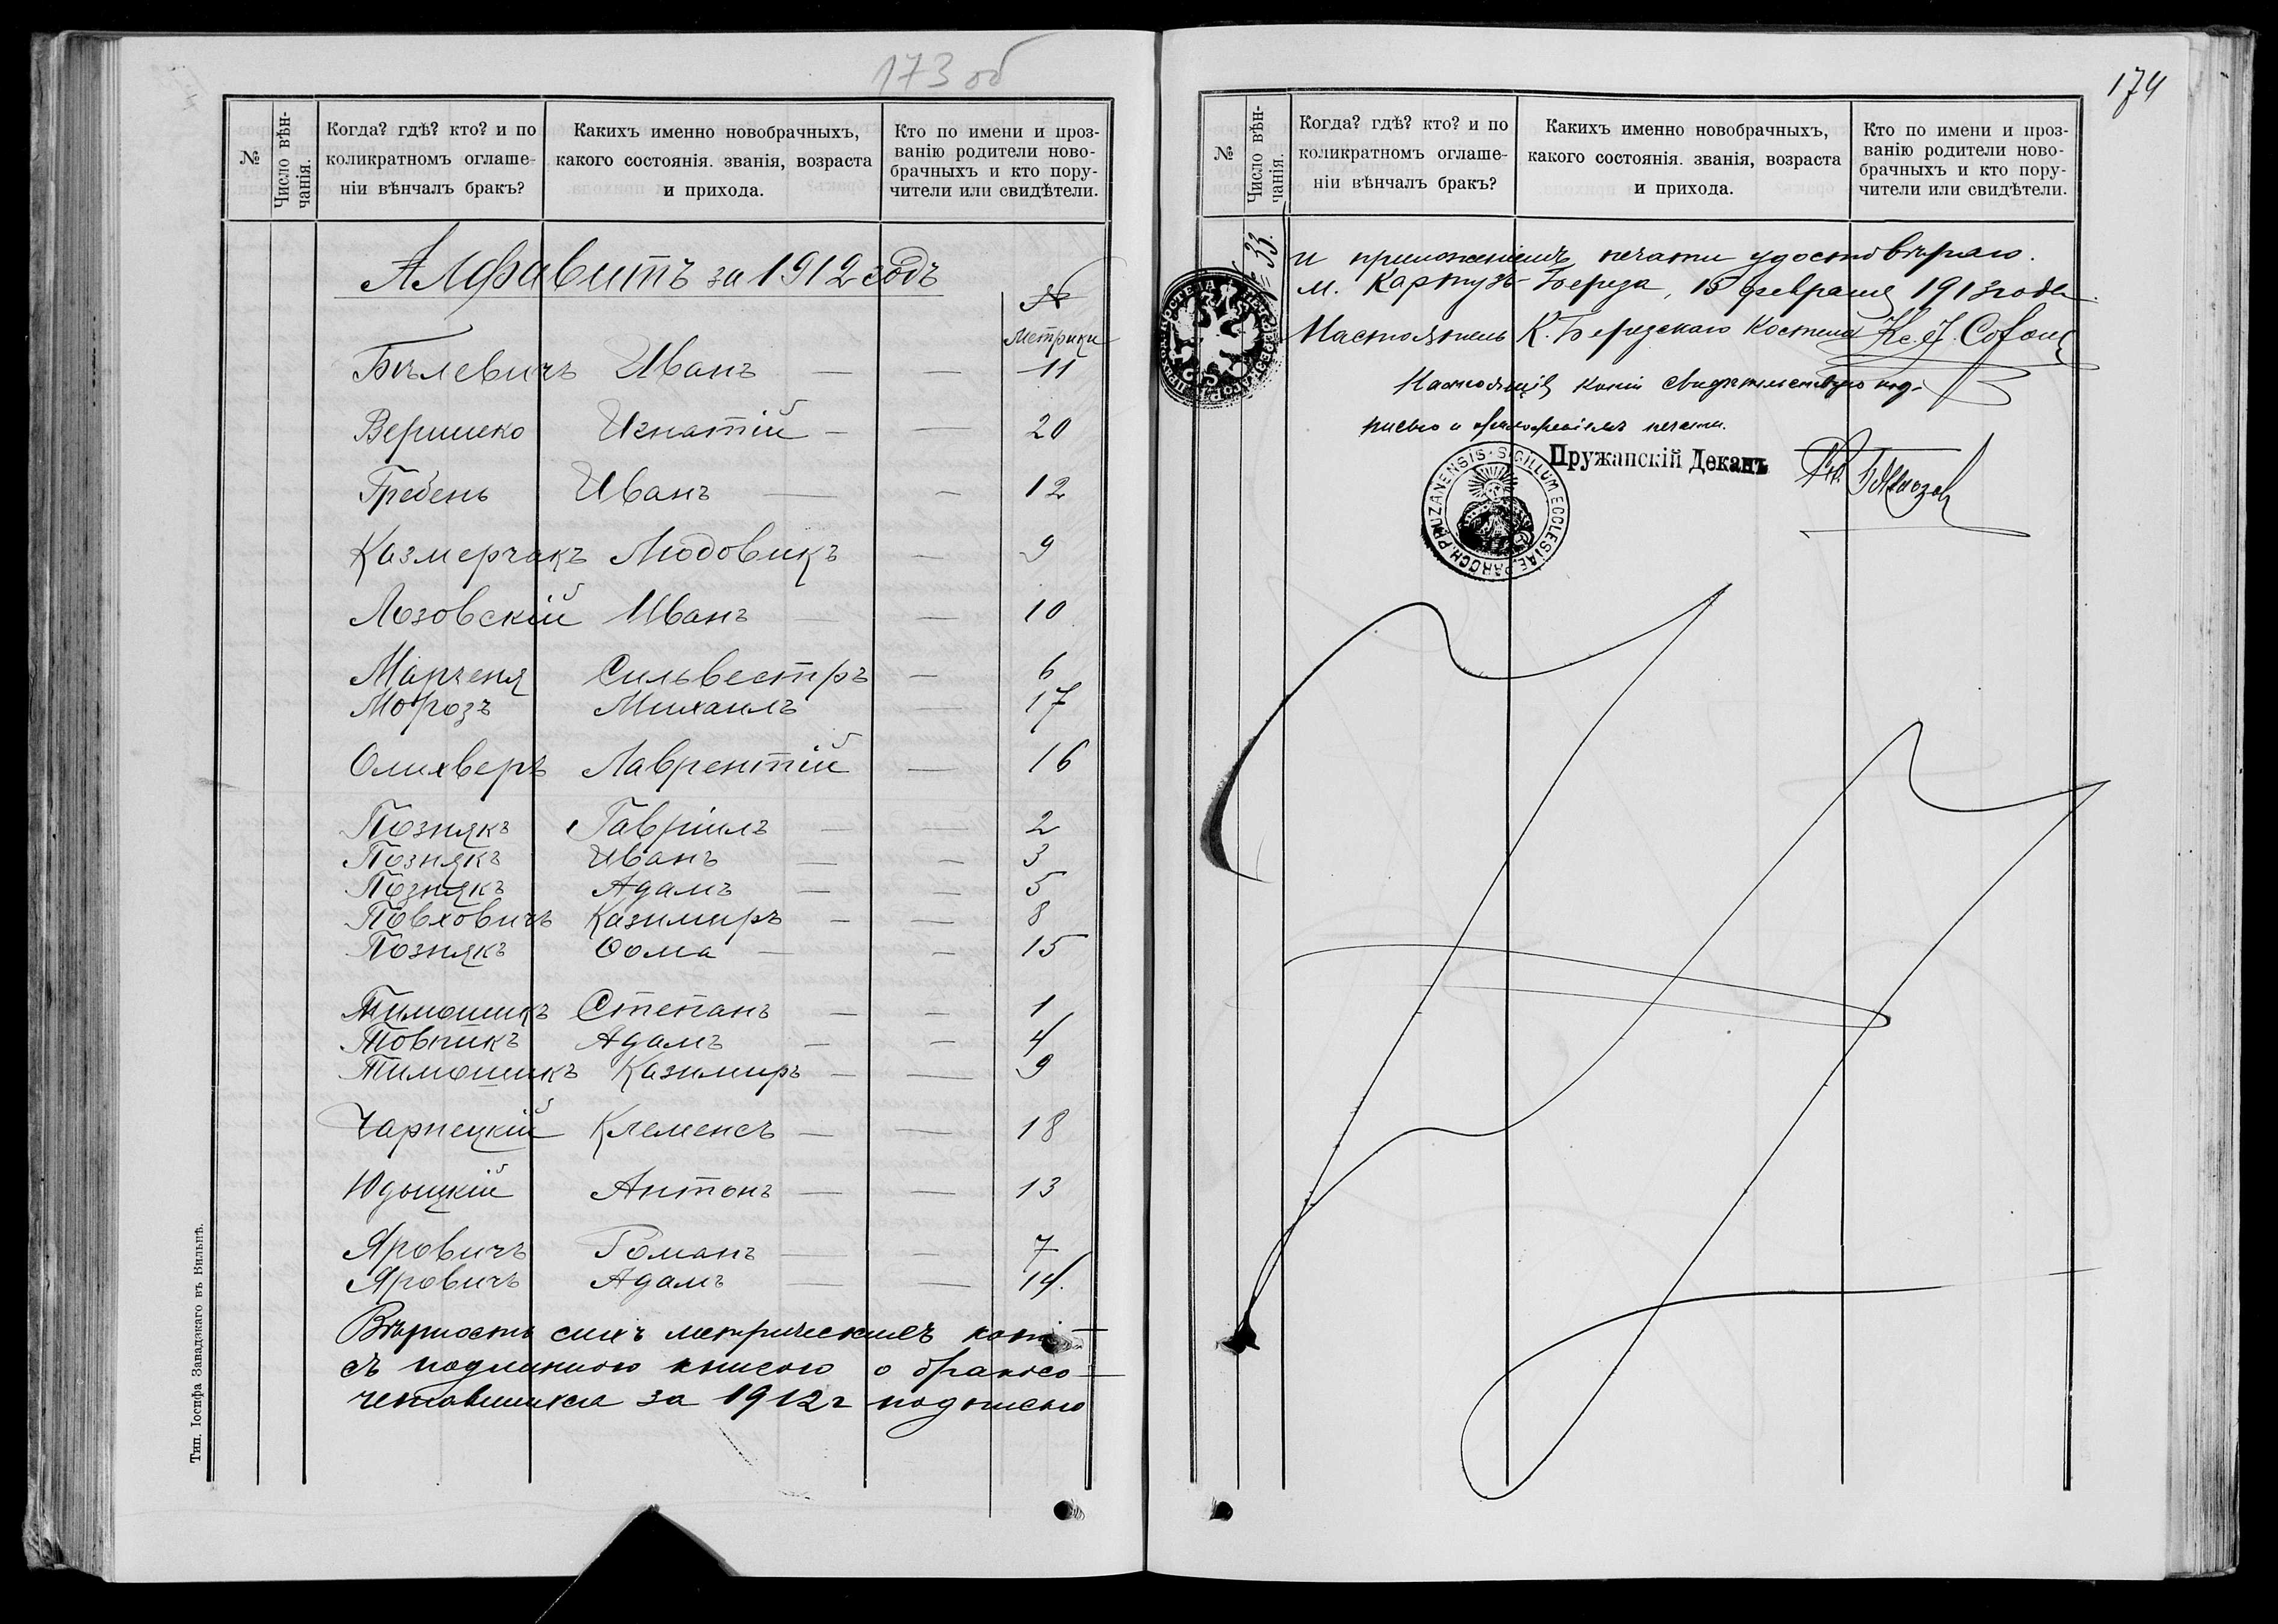 173 об
№
Число вѣн-
чанія.
Когда? гдѣ? кто? и по
коликратномъ оглаше-
ніи вѣнчалъ бракъ?
Какихъ именно новобрачныхъ,
какого состоянія. званія, возраста
и прихода.
Кто по имени и проз-
ванію родители ново-
брачныхъ и кто пору-
чители или свидѣтели.
Алфавитъ за 1912 годъ
№
метрики
Бѣлевичъ Иванъ — — 11
Вершеко Игнатій — — 20
Гребень Иванъ — — 12
Казмерчакъ Людовикъ — 9
Лозовскій Иванъ — — 10
Манченя Сильвестръ — 6
Морозъ Михаилъ — 17
Олихверъ Лаврентій — 16
Познякъ Гавріилъ — — 2
Познякъ Иванъ — — 3
Познякъ Адамъ — — 5
Повховичъ Казимиръ — — 8
Познякъ Ѳома — — 15
Тимошикъ Степанъ — — 1
Товпикъ Адамъ — — 4
Тимошикъ Казимиръ — — 9
Чарнецкій Клеменсъ — — 18
Юдыцкій Антонъ — — 13
Яровичъ Романъ — — 7
Яровичъ Адамъ — — 14.
Вѣрность сихъ метрическихъ копі
съ подлинною книгою о бракосо-
четавшихся за 1912 г подписью
Тип. Іосифа Завадзкаго въ Вильнѣ.
174
№
Число вѣн-
чанія.
Когда? гдѣ? кто? и по
коликратномъ оглаше-
ніи вѣнчалъ бракъ?
Какихъ именно новобрачныхъ,
какого состоянія. званія, возраста
и прихода.
Кто по имени и проз-
ванію родители ново-
брачныхъ и кто пору-
чители или свидѣтели.
№ 33.
и приложеніемъ печати удостовѣряю.
м. Картузъ-Береза, 15 февраля 1913 года.
Настоятель К. Березскаго Костела Кс. J.
Настоящія копіи свидѣтельствую под-
писью и приложеніемъ печати.
Пружанскій Деканъ
SIGILLUM ECCLESIAE PAROCH. PRUZANENSIS